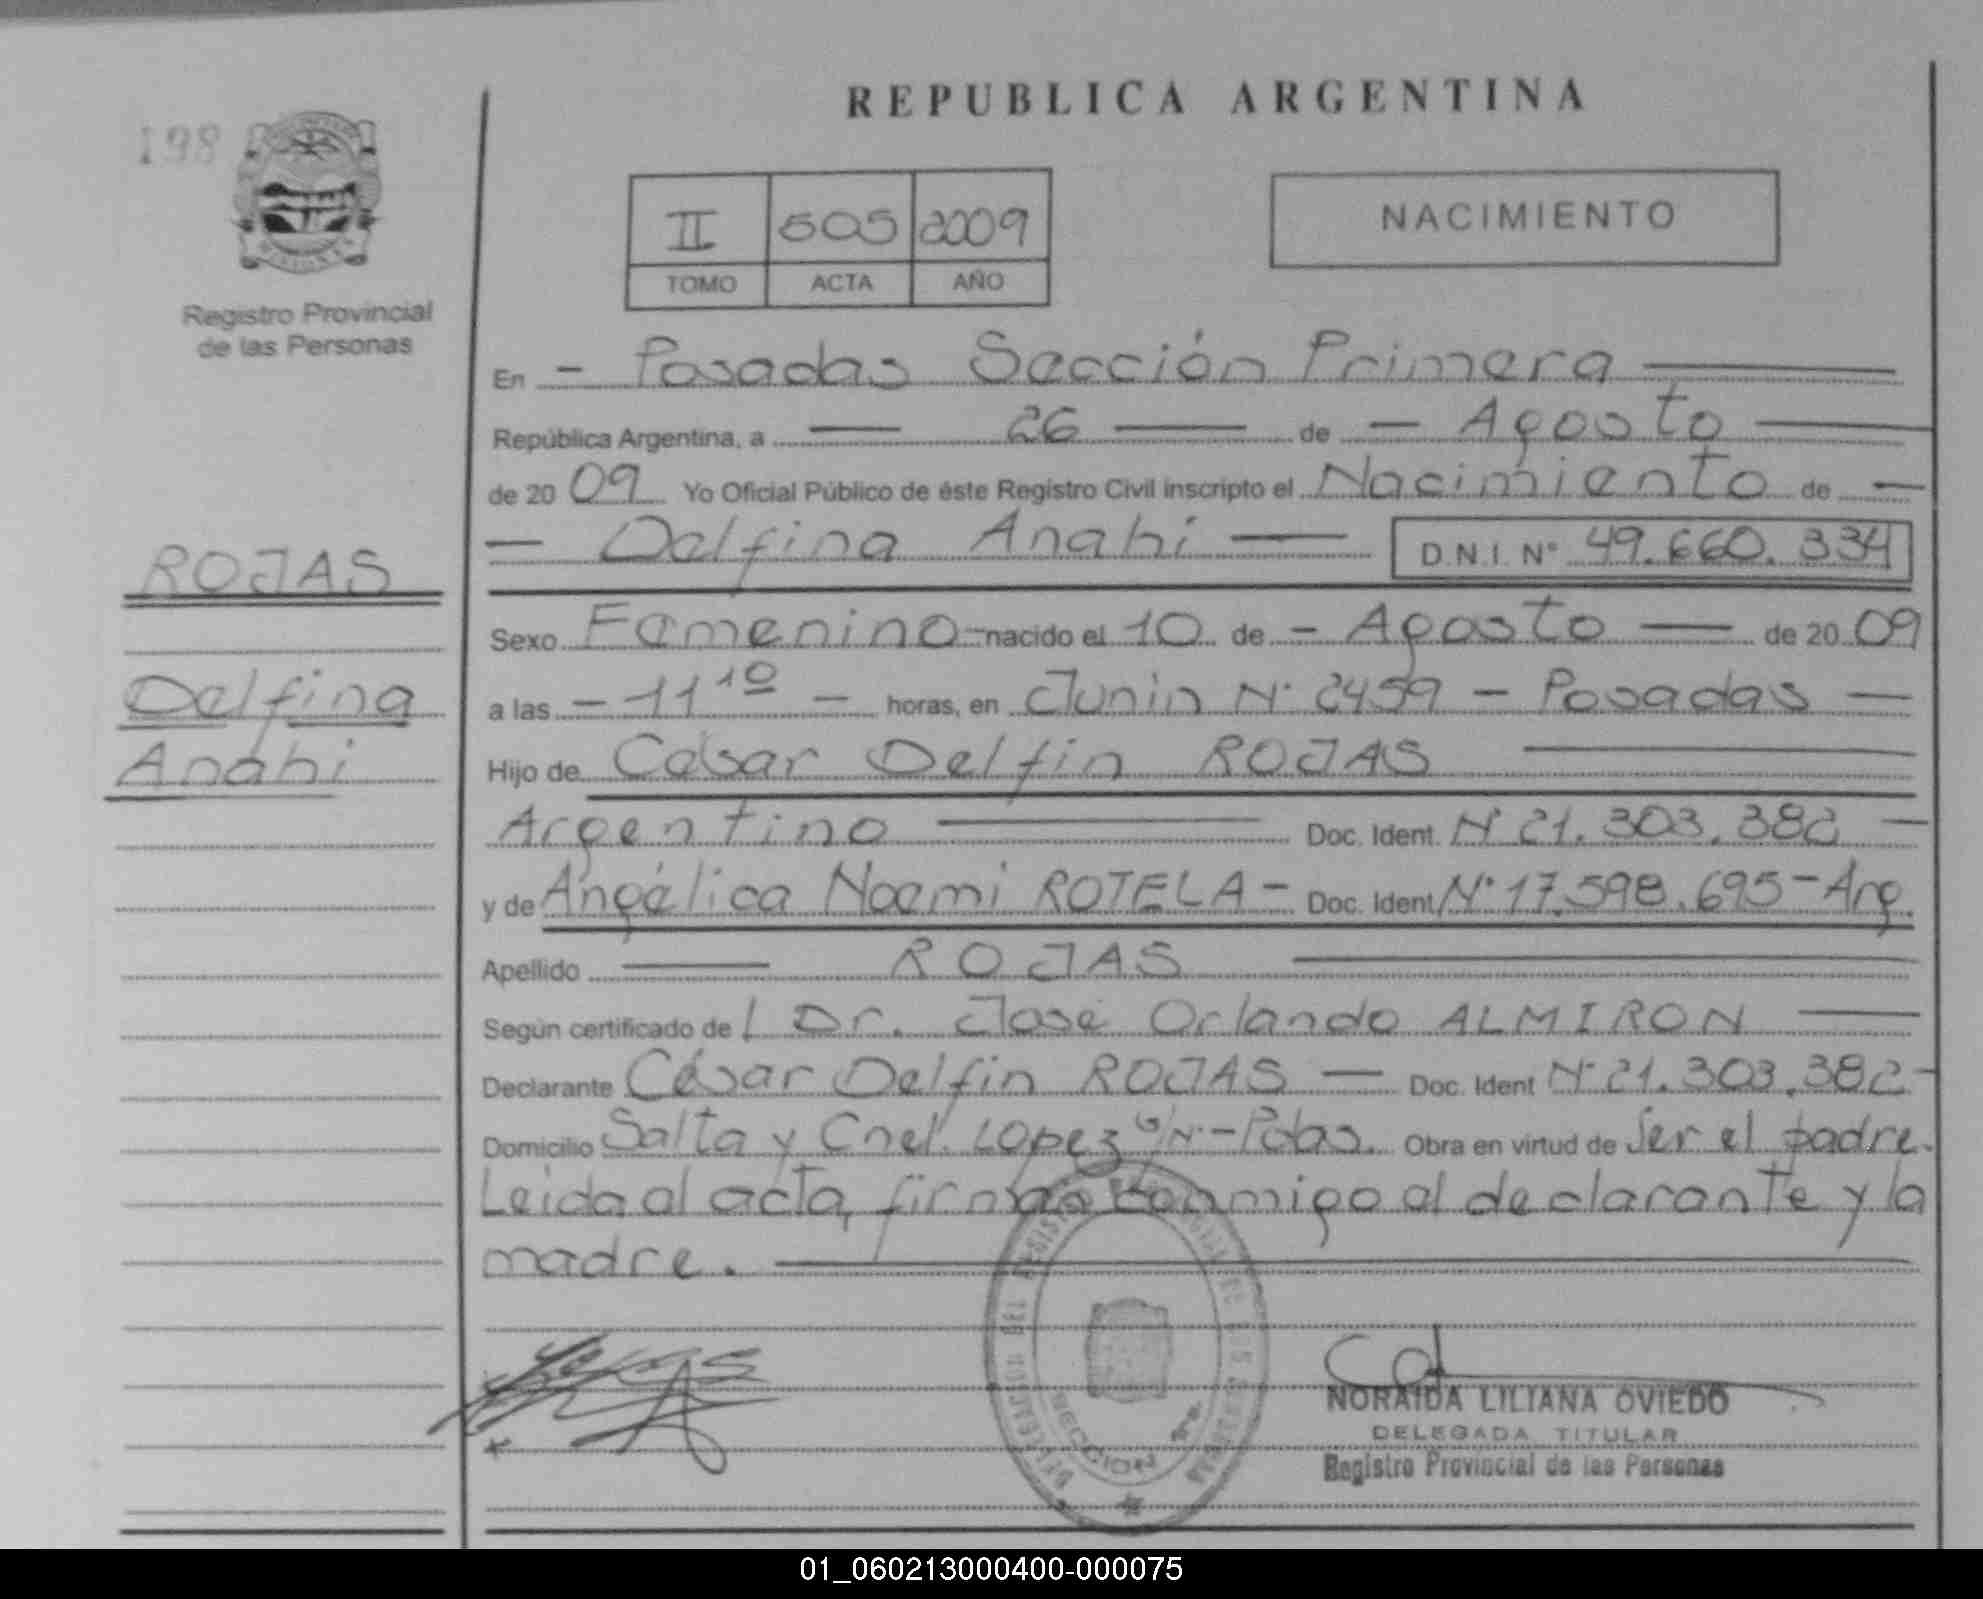 REPUBLICA ARGENTINA
198
II 505 2009
TOMO ACTA AÑO
NACIMIENTO
Registro Provincial
de las Personas
En - Posadas Sección Primera
República Argentina, a 26 de - Agosto
de 20 09 Yo Oficial Público de éste Registro Civil inscripto el Nacimiento de -
- Delfina Anahi - D.N.I. N° 49.660.334
ROJAS
Delfina
Anahi
Sexo Femenino - nacido el 10 de - Agosto - de 20 09
a las - 11 10 - horas, en Junin N° 2459 - Posadas -
Hijo de César Delfin ROJAS
Argentino Doc. Ident. N° 21.303.382 -
y de Angélica Noemi ROTELA - Doc. Ident N° 17.598.695 - Arg.
Apellido ROJAS
Según certificado de Dr. José Orlando ALMIRON
Declarante César Delfin ROJAS - Doc. Ident N° 21.303.382 -
Domicilio Salta y Cnel. Lopez S/N° - Pdas. Obra en virtud de Ser el padre.
Leida el acta, firman conmigo el declarante y la
madre.
NORAIDA LILIANA OVIEDO
DELEGADA TITULAR
Registro Provincial de las Personas
SECCION 1ra.
01_060213000400-000075